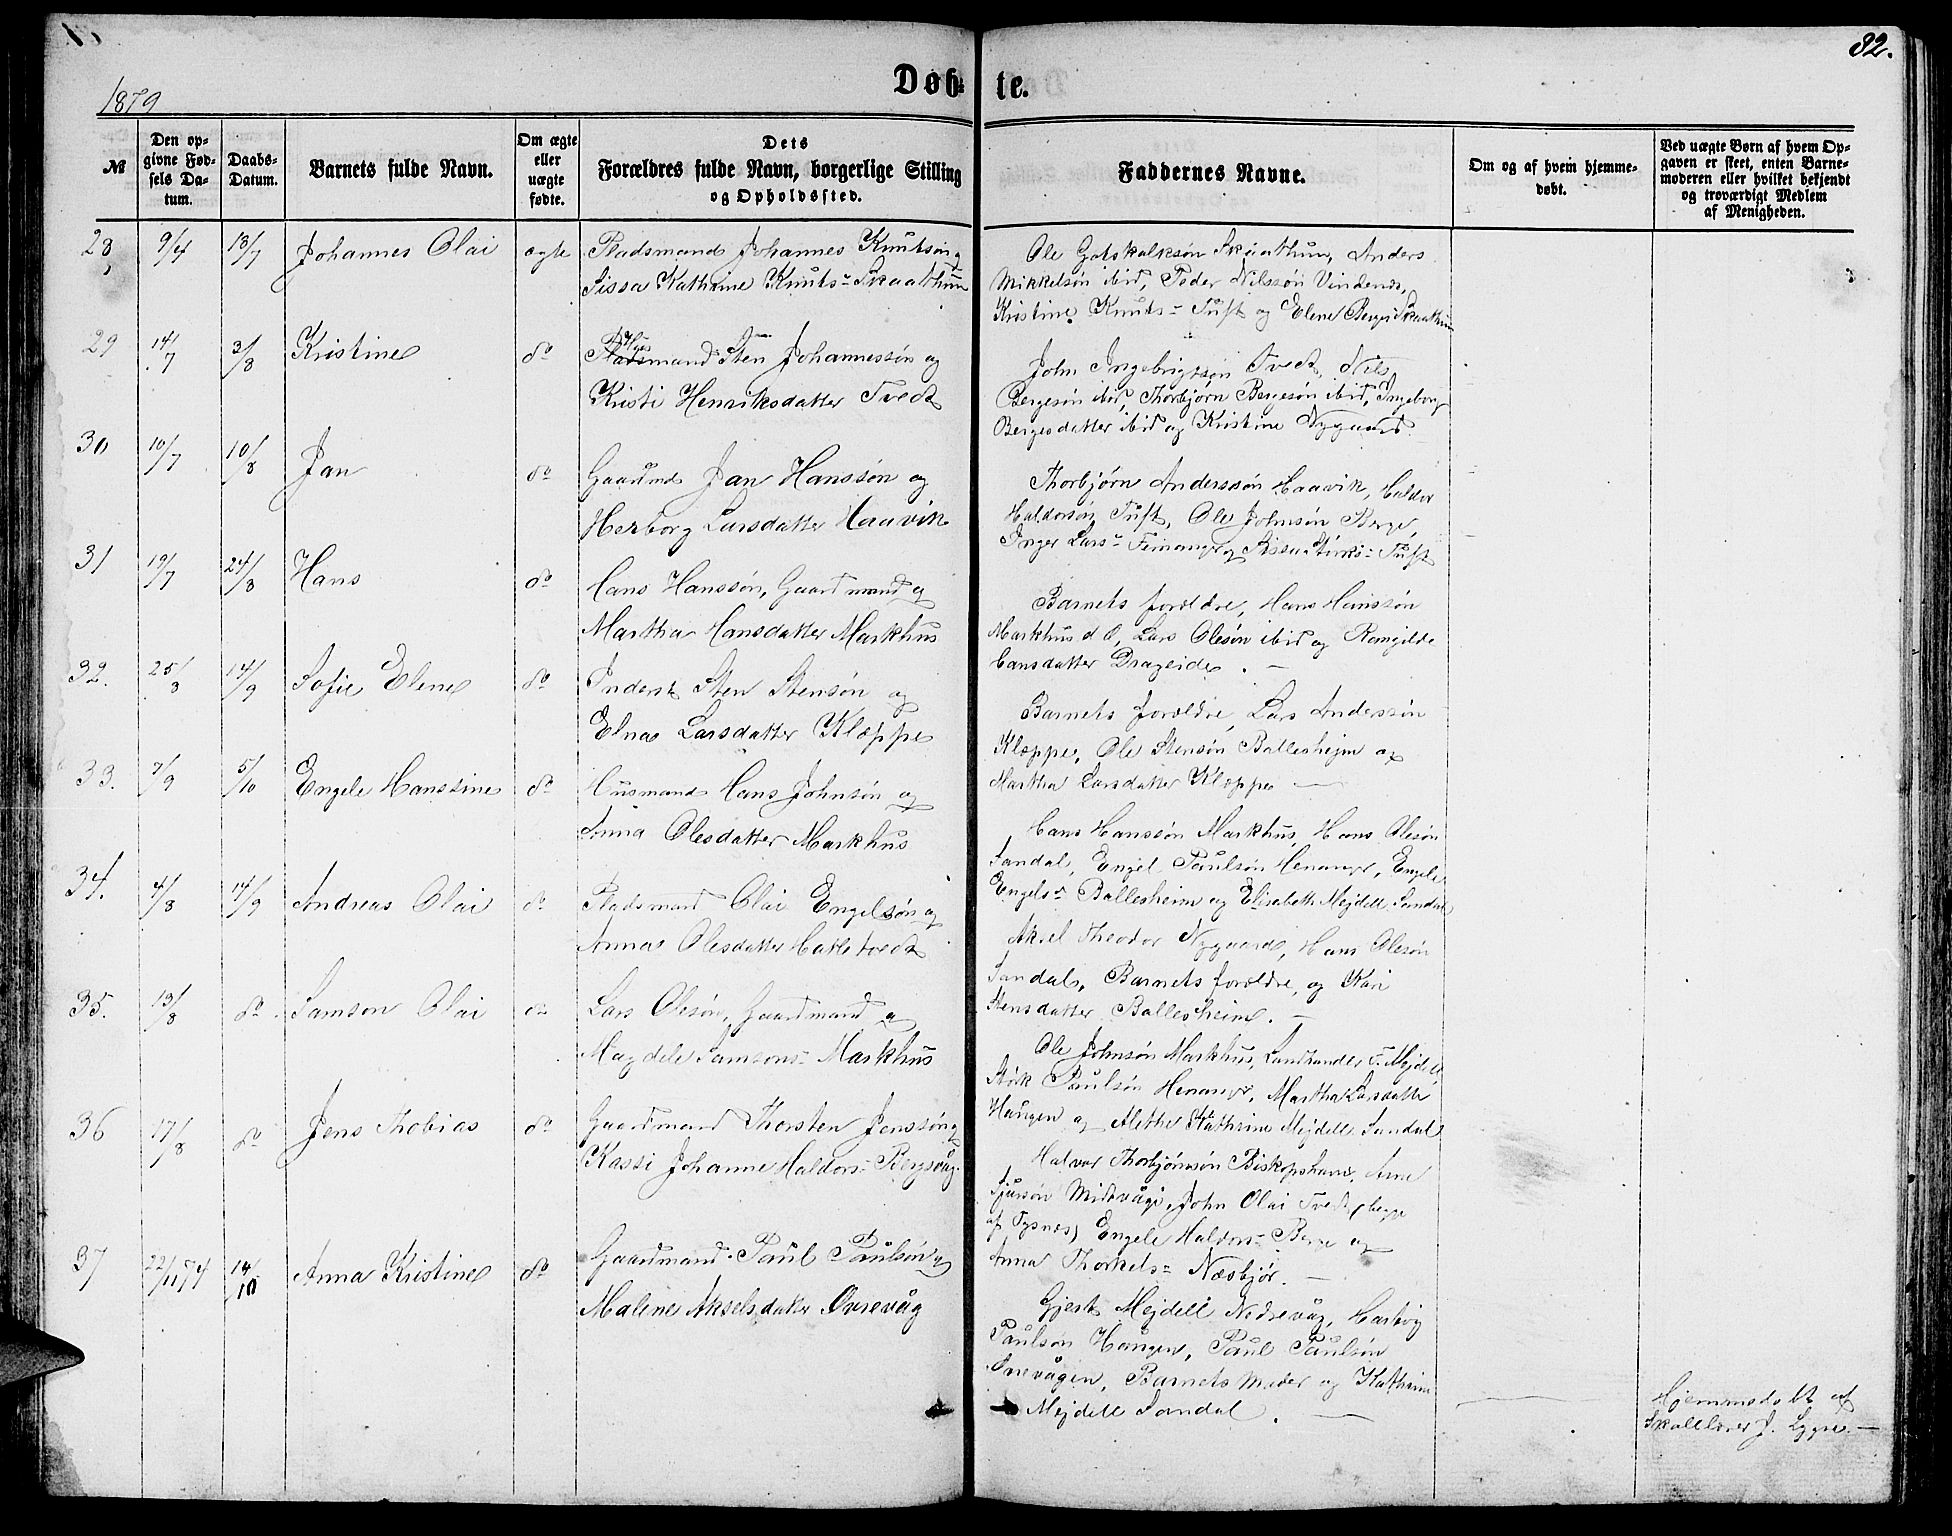 82.
Døb- te.
1879
№
Den op-
givne Fød-
sels Da-
tum.
Daabs-
Datum.
Barnets fulde Navn.
Om ægte
eller
uægte
fødte.
Dets
Forældres fulde Navn, borgerlige Stilling
og Opholdssted.
Faddernes Navne.
Om og af hvem hjemme-
døbt.
Ved uægte Børn af hvem Op-
gaven er skeet, enten Barne-
moderen eller hvilket bekjendt
og troværdigt Medlem
af Menigheden.
28, 9/4 13/7 Johannes Olai ægte Pladsmand Johannes Knutsøn og
Sissa Kathrine Knuts- Skaathun
Ole Gotskalksøn Skaathun, Anders
Mikkelsøn ibid, Peder Nilssøn Vindenes,
Kristine Knuts- Tuft og Elene Berges Skaathun
29 14/7 3/8 Kristine do Pladsmand Sten Johannessøn og
Kristi Henriksdatter Tvedt
John Ingebrigtsøn Tvedt, Nils
Bergesøn ibid, Thorbjørn Bergesøn ibid, Ingeborg
Bergesdatter ibid og Kristine Nygaard.
30 10/7 10/8 Jan do Gaardmd Jan Hanssøn og
Herborg Larsdatter Haavik
Thorbjørn Anderssøn Haavik, Haldor
Haldorsøn Tuft, Ole Johnsøn Berge,
Inger Lars- Femanger og Sissa Størks- Tuft
31 19/7 24/8 Hans do Hans Hanssøn, Gaardmand og
Martha Hansdatter Markhus
Barnets forældre, Hans Hanssøn
Markhus d. Æ, Lars Olesøn ibid og Rangilde
Hansdatter Drageide. —
32. 25/8 14/9 Sofie Elene do Inderst Sten Stensøn og
Elna Larsdatter Kleppe
Barnets forældre, Lars Anderssøn
Kleppe, Ole Stensøn Ballesheim og
Martha Larsdatter Kleppe —
33. 7/9 5/10 Engele Hanssine do Husmand Hans Johnsøn og
Anna Olesdatter Markhus
Hans Hanssøn Markhus, Hans Olesøn
Sandal, Engel Paulsøn Henanger, Engele
Engels- Ballesheim og Elisabeth Mejdell Sandal
34. 4/8 14/9 Andreas Olai do Pladsmand Olai Engelsøn og
Anna Olesdatter Hatletvedt
Aksel Theodor Nygaard, Hans Olesøn
Sandal, Barnets forældre, og Kari
Stensdatter Ballesheim. —
35. 13/8 do Samson Olai do Lars Olesøn, Gaardmand og
Magdele Samsons- Markhus
Ole Johnsøn Markhus, Landhandler F. Mejdell,
Størk Paulsøn Henanger, Martha Larsdatter
Haugen og Alethe Kathrine Mejdell Sandal
36 17/8 do Jens Thobias do Gaardmand Thorsten Jenssøn og
Kassi Johanne Haldors- Bergsvåg.
Halvor Thorbjørnsøn Biskopshavn, Arne
Sjursøn Midtvåge, John Olai Tvedt (begge
af Tysnes) Engele Haldors- Berge og
Anna Thorkels- Næsbjør. —
37 22/11 74 14/10 Anna Kristine do Gaardmand Paul Paulsøn og
Maline Akselsdatter Øvrevåg
Gjert Mejdell Nedrevåg, Hartvig
Paulson Haugen, Paul Paulsøn
Øvrevågen, Barnets Moder og Kathrine
Mejdell Sandal. —
Hjemmedøbt af
Skolelærer J. Lygre. —